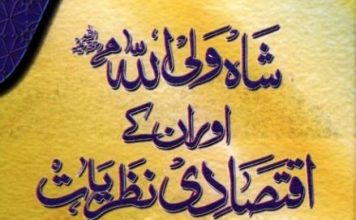 شاہ ولی اللہؒ
اور ان کے
اقتصادی نظریات